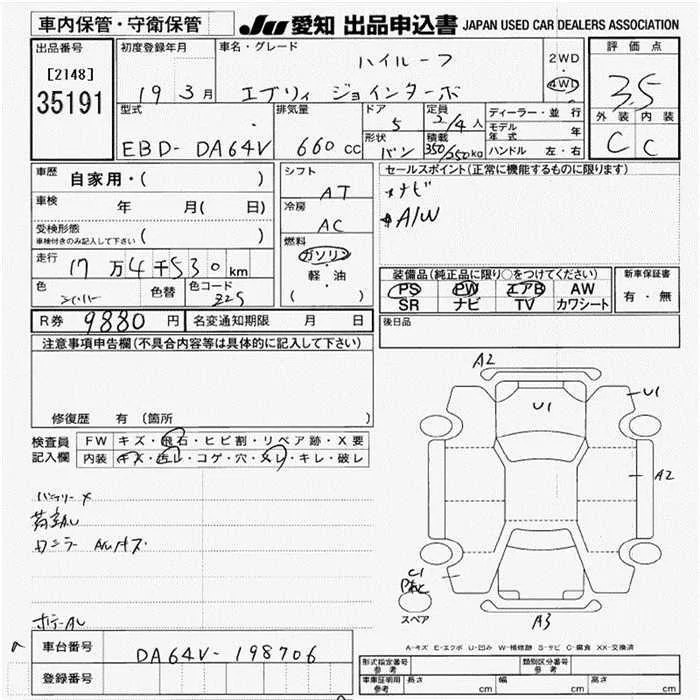 車内保管・守衛保管
JU 愛知 出品申込書 JAPAN USED CAR DEALERS ASSOCIATION
出品番号
[2148]
35191
初度登録年月
19 3月
車名・グレード
ハイルーフ
エブリィ ジョインターボ
2WD
・
4WD
評価点
3.5
外装 内装
C C
型式
EBD-DA64V
排気量
660 CC
ドア
5
形状
バン
定員
2/4人
積載
350/250kg
ディーラー・並行
モデル年式 年
ハンドル 左・右
車歴
自家用・( )
車検 年 月( 日)
受検形態
車検付きのみ記入して下さい ( )
走行 17万4千530km
色
シルバー
色替
色コード
Z2S
シフト
AT
冷房
AC
燃料
ガソリン
・
軽・油
( )
セールスポイント(正常に機能するものに限ります)
ナビ
A/W
装備品(純正品に限り○をつけてください)
PS PW エアB AW
SR ナビ TV カワシート
新車保証書
有・無
R券 9880円 名変通知期限 月 日
後日品
注意事項申告欄(不具合内容等は具体的に記入して下さい)
修復歴 有 (箇所 )
検査員
記入欄
FW キズ・飛石・ヒビ割・リペア跡・X要
内装 キズ・汚レ・コゲ・穴・スレ・キレ・破レ
バッテリーX
A2
U1
U1
A2
C1
スペア
A3
車台番号 DA64V-198706
登録番号
A-キズ E-エクボ U-凹み W-補修跡 S-サビ C-腐食 XX-交換済
形式指定番号
参考
類別区分番号
参考
車庫証明用
参考
長さ cm 幅 cm 高さ cm